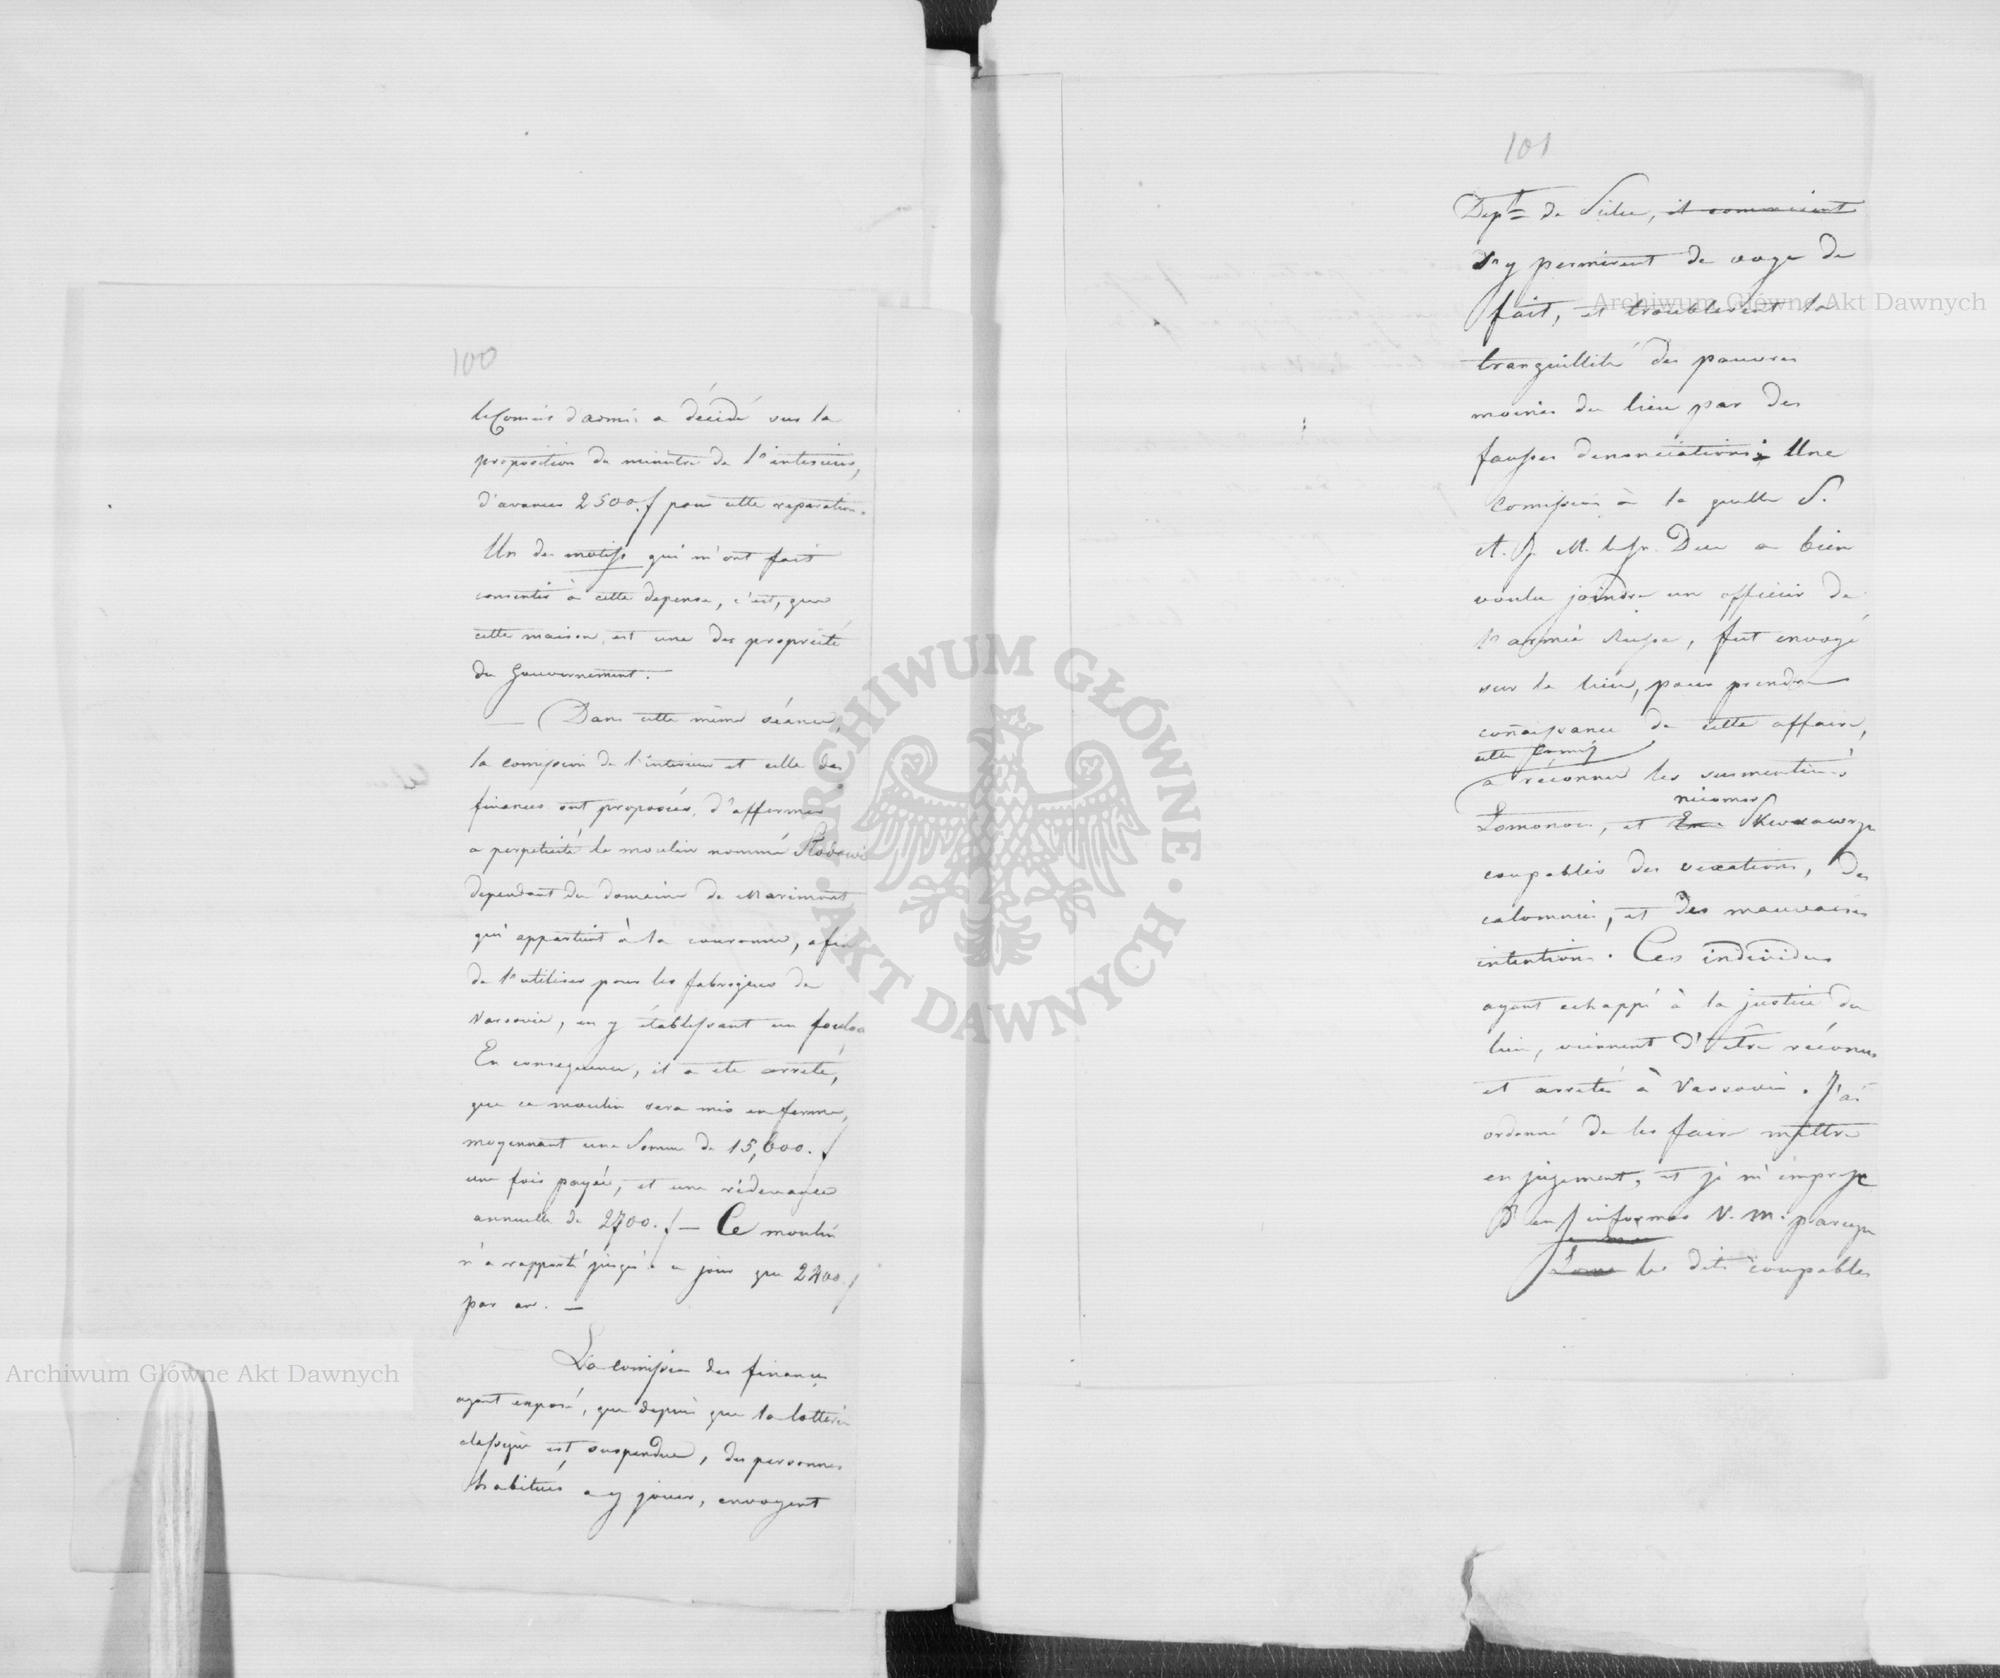 100
le Conseil d'admi: a décidé sur la
proposition du ministre de l'interieur,
d'avancer 2500.f pour cette reparation.
Un des motifs qui m'ont fait
consentir à cette depense, c'est, que
cette maison est une des proprieté
du gouvernement.
— Dans cette même séance,
la comission de l'interieur et celle des
finances ont proposées, d'affermer
a perpetuité le moulin nommé
dependant du domaine de Marimont
qui appartient à la couronne, afin
de l'utiliser pour les fabriques de
Varsovie, en y établissant un foulon
En consequence, il a eté arreté,
que ce moulin sera mis en ferme,
moyennant une Somme de 15,600.f
une fois payée, et une rédevance
annuelle de 2700.f — Ce moulin
n'a rapporté jusqu'a ce jour que 2400.f
par an. —
La comission des finances
ayant exposé, que depuis que la lotterie
classique est suspendue, des personnes
habitués a y jouer, envoyent
101
Dept de il commirent
s'y permirent de voye de
fait, et troublerent la
tranquillité des pauvres
moines du lieu par des
fausses denonciations. Une
Comission à la quelle S.
A. J. M. le Gr. Duc a bien
voulu joindre un officier de
l'armée Russe, fut envoyé
sur le lieu, pour prendre
conaissance de cette affaire,
cette Comis
a réconnu les susmentionés
Lomonos, et
coupables des vexations, des
calomnies, et des mauvaises
intentions. Ces individus
ayant echappé à la justice du
lieu, viennent d'être réconus
et arretés à Varsovie. J'ai
ordonné de les faire mettre
en jugement, et je m'empresse
d'en informer V. M. parceque
les dits coupables
Archiwum Główne Akt Dawnych
Archiwum Główne Akt Dawnych
ARCHIWUM GŁÓWNE · AKT DAWNYCH ·